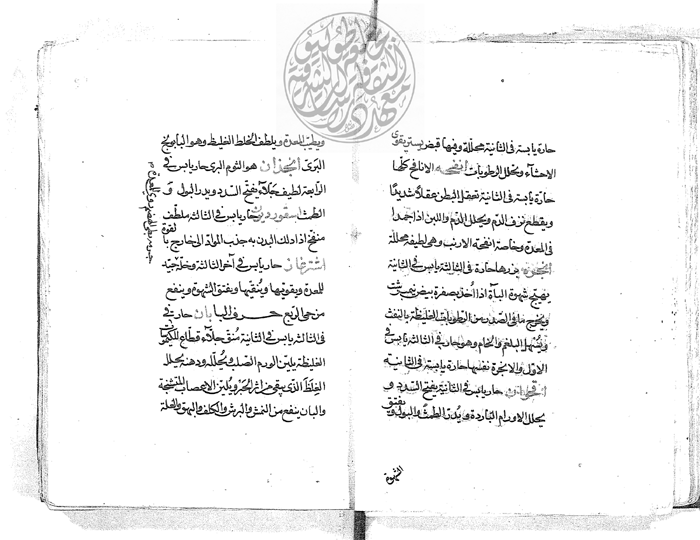 حارة يابسة فى الثانية محللة وفيها قبض يسير يقوى
الاحشاء ويحلل الرطوبات انفحه الانافح كلها
حارة يابسة فى الثانية تعقل البطن عقلا شديدا
ويقطع نزف الدم ويحلل الدم واللبن اذا جمدا
فى المعدة وخاصة انفحة الارنب وهى لطيفة محللة
انجره بزرها حارة فى الثالثة يابس فى الثانية
يهيج شهوة الباة اذا أخذ بصفرة بيض نيمبرشت
ويخرج ما فى الصدر من الرطوبات الغليظة بالنفث
ويسهل البلغم والخام وهو حار فى الثالثة يابس فى
الاولى والانجرة نفسها حارة يابسة فى الثانية
حار يابس فى الثانية يفتح السدد و
يحلل الاورام الباردة ويدر الطمث والبول ويفتق
الشهوة
ويطيب المعدة ويلطف الخلط الغليظ وهو البابونج
البرى انجدان هو الثوم البرى حار يابس فى
الرابعة لطيف جلاء يفتح السدد ويدر البول و
الطمث اسقورديون حار يابس فى الثالثة ملطف
مفتح اذا دلك البدن به جذب المواد الى خارج
لقوة
اشترغاز حار يابس فى آخر الثالثة وخله جيد
للمعدة ويقويها وينقيها ويفتق الشهوة وينفع
من حمى الربع حرف البا بان حار فى
الثالثة يابس فى الثانية منق جلاء قطاع للكيموسات
الغليظة يلين الورم الصلب ويحلله ودهنه يحلل
الغلظ الذى يبقى من اثر الجرب ويلين الاعصاب المتشنجة
والبان ينفع من النمش والبرش والكلف والبهق والعلة